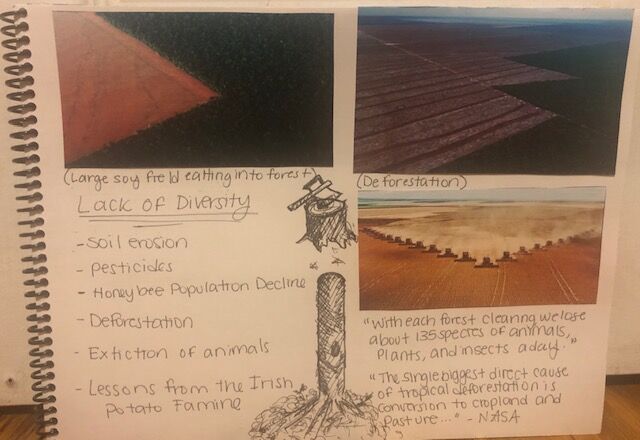 (Large soy field eatting into forest)
(Deforestation)
Lack of Diversity
- Soil erosion
- Pesticides
- Honeybee Population Decline
- Deforestation
- Extiction of animals
- Lessons from the Irish
Potato Famine
"With each forest clearing we lose
about 135 species of animals,
Plants, and insects a day."
"The single biggest direct cause
of tropical deforestation is
conversion to cropland and
Pasture..." - NASA